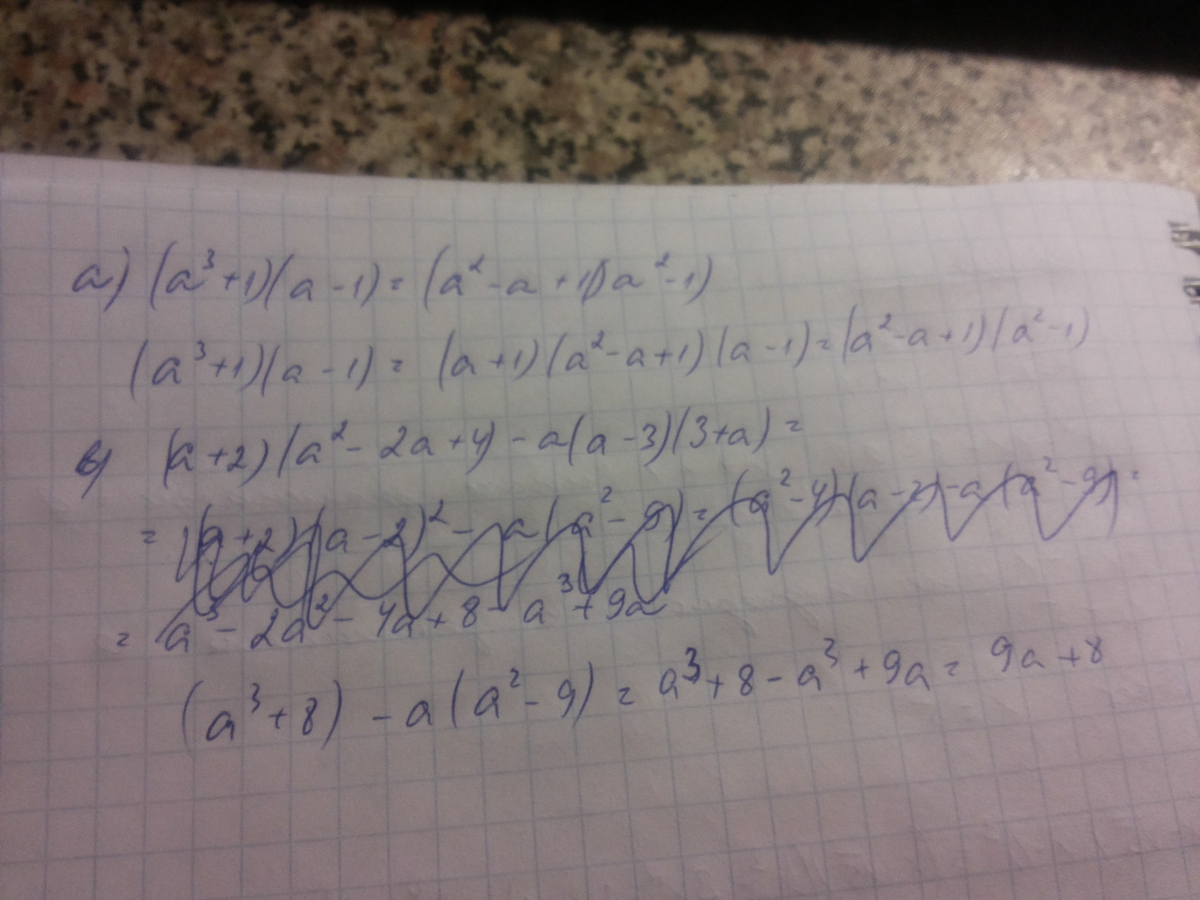 а) (a³+1)(a-1) = (a²-a+1)(a²-1)
(a³+1)(a-1) = (a+1)(a²-a+1)(a-1) = (a²-a+1)(a²-1)
в) (a+2)(a²-2a+4)-a(a-3)(3+a) =
= (a+2)(a-2)²-a(a²-9) = (a²-4)(a-2)-a(a²-9) =
= a³-2a²-4a+8-a³+9a
(a³+8)-a(a²-9) = a³+8-a³+9a = 9a+8